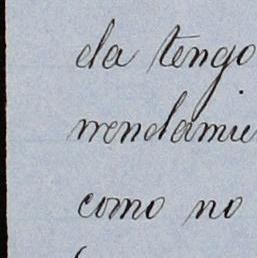 da tengo
mendamie
como no